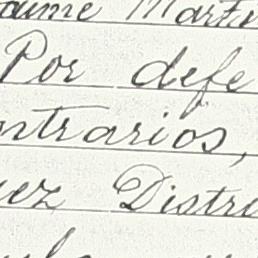 aume Mart
Por defe
ntrarios,
uez Distri